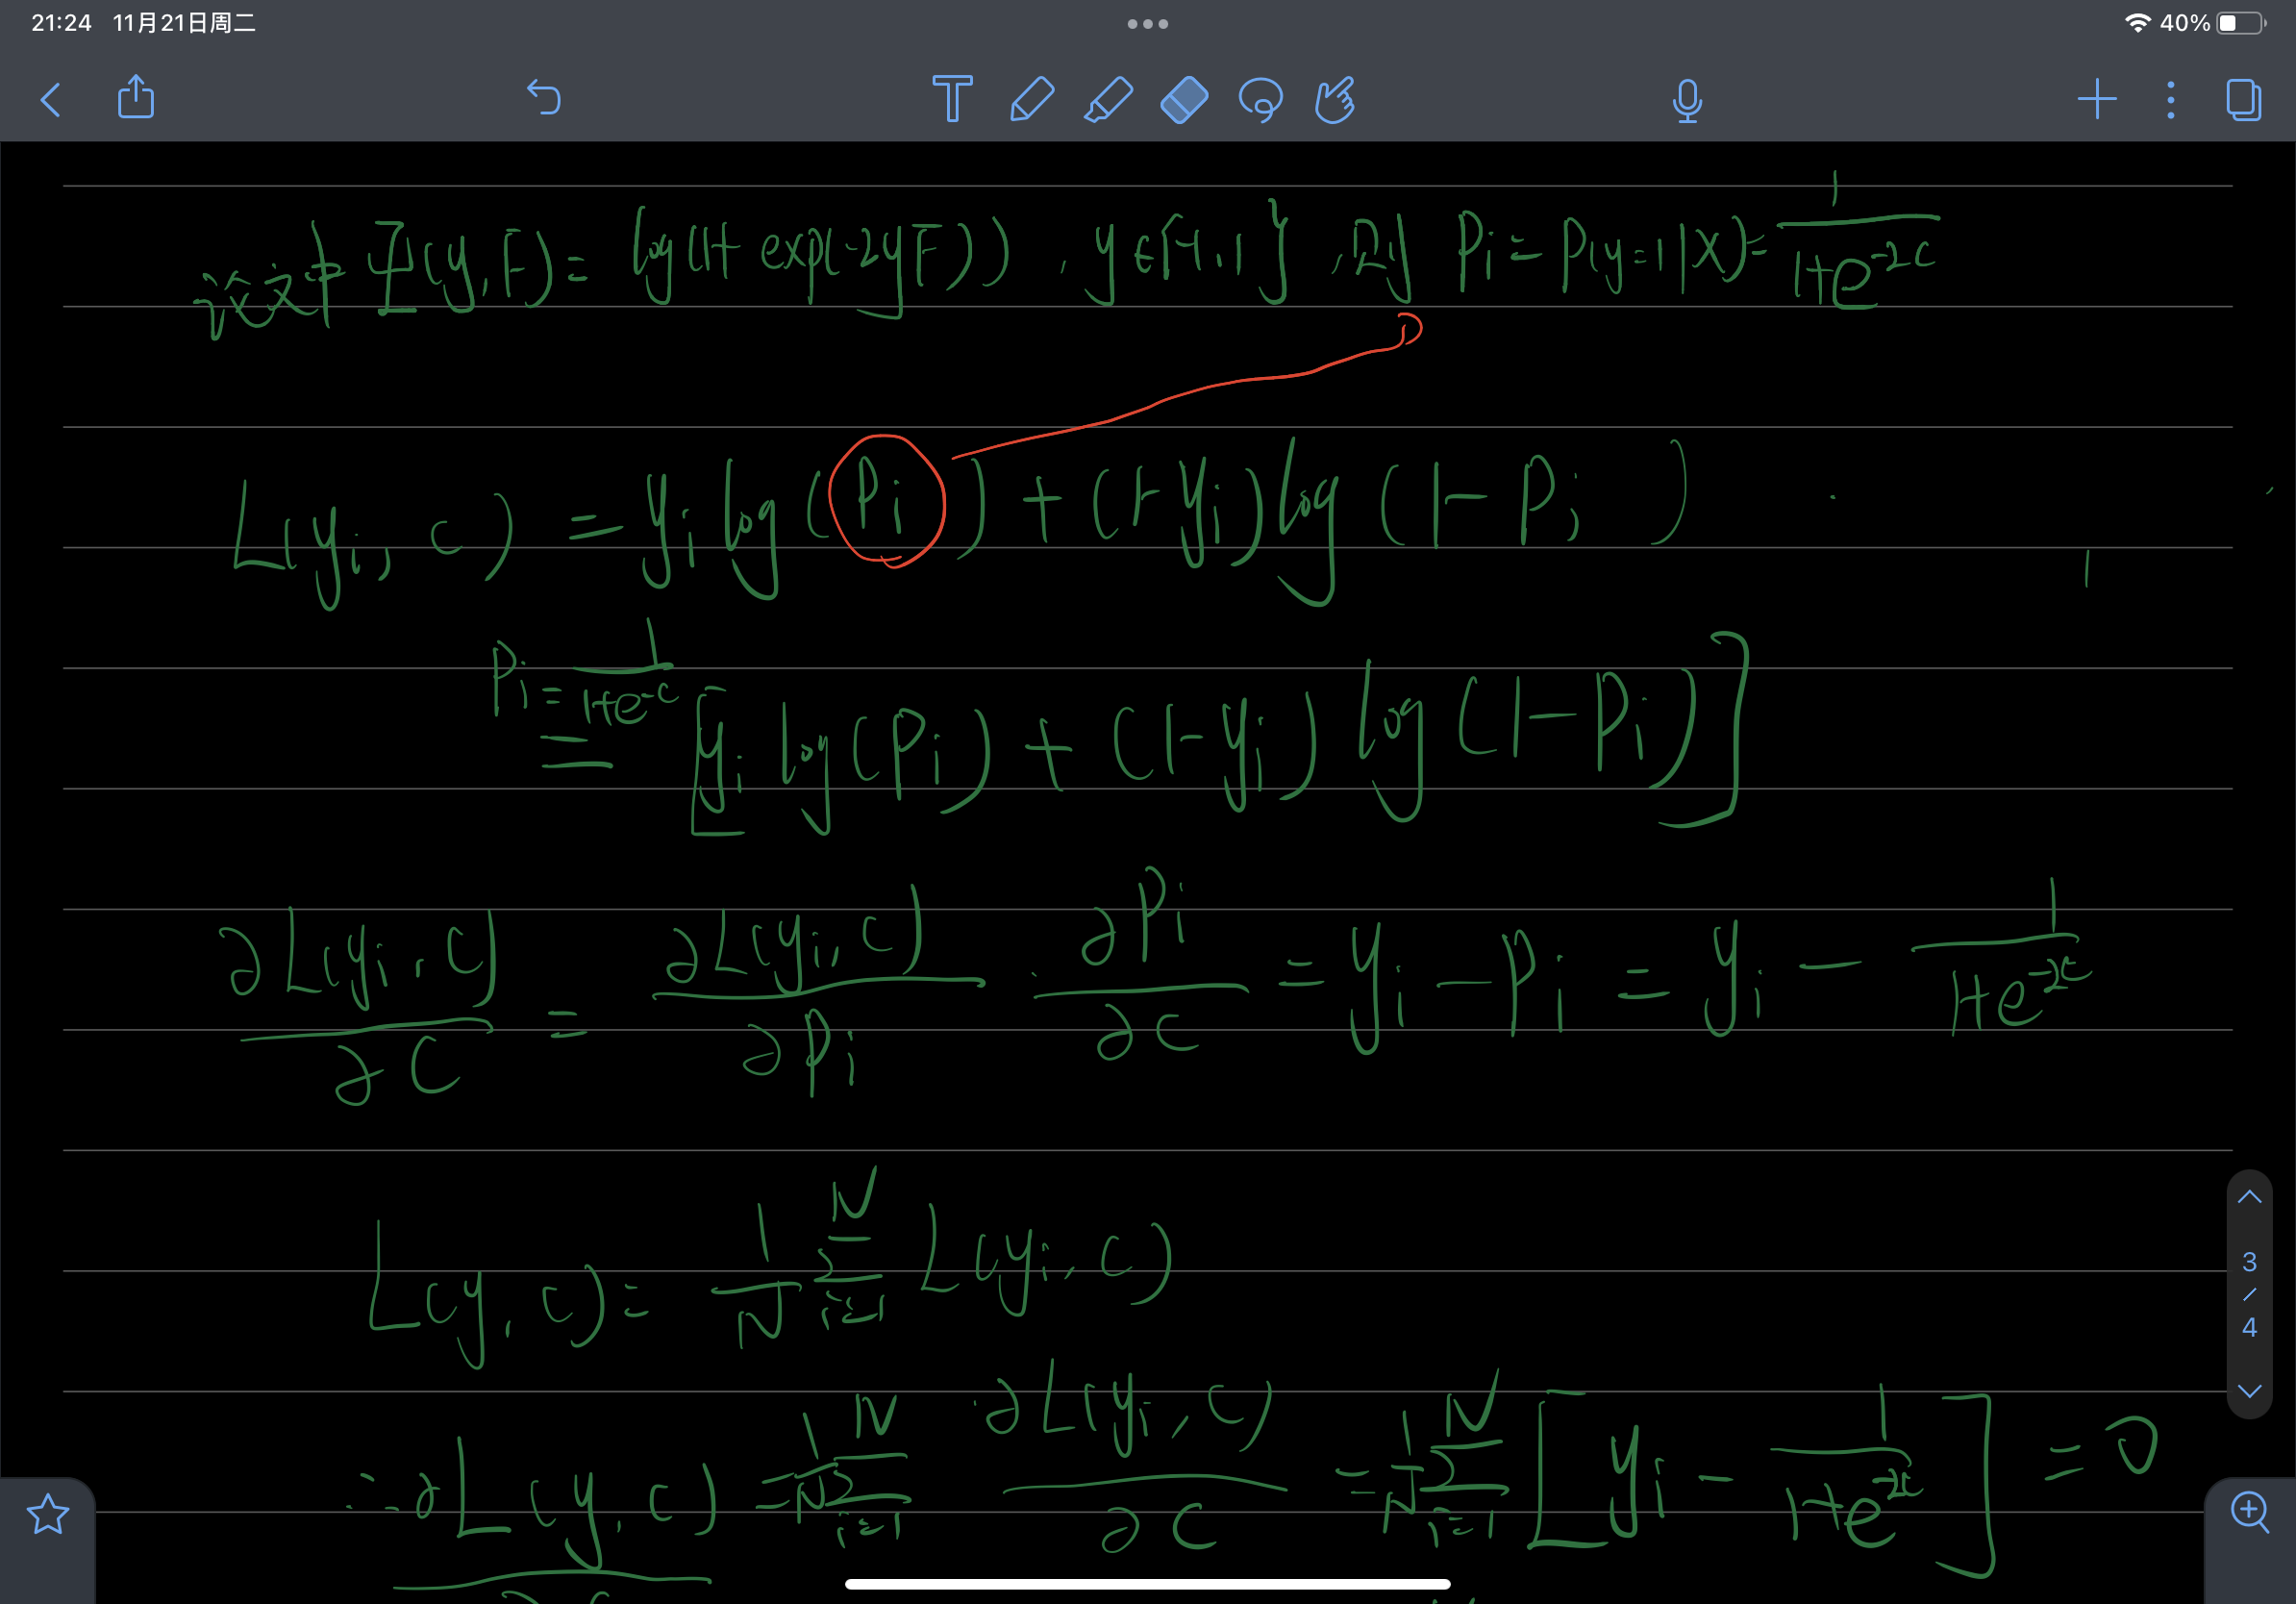 21:24 11月21日周二 40%
L(y, F) = log(1+exp(-2yF)), y∈{-1,1}, 则 Pi = P(y=1|X) = 1/(1+e^-2c)
L(yi, c) = yi log(Pi) + (1-yi) log(1-Pi)
Pi = 1/(1+e^-c)
= [yi log(Pi) + (1-yi) log(1-Pi)]
∂L(yi, c)/∂c = ∂L(yi, c)/∂Pi · ∂Pi/∂c = yi - Pi = yi - 1/(1+e^-2c)
L(y, c) = 1/N Σ_{i=1}^N L(yi, c)
∴ ∂L(y, c) = 1/N Σ_{i=1}^N ∂L(yi, c)/∂c = 1/N Σ_{i=1}^N [yi - 1/(1+e^-2c)] = 0
3
/
4